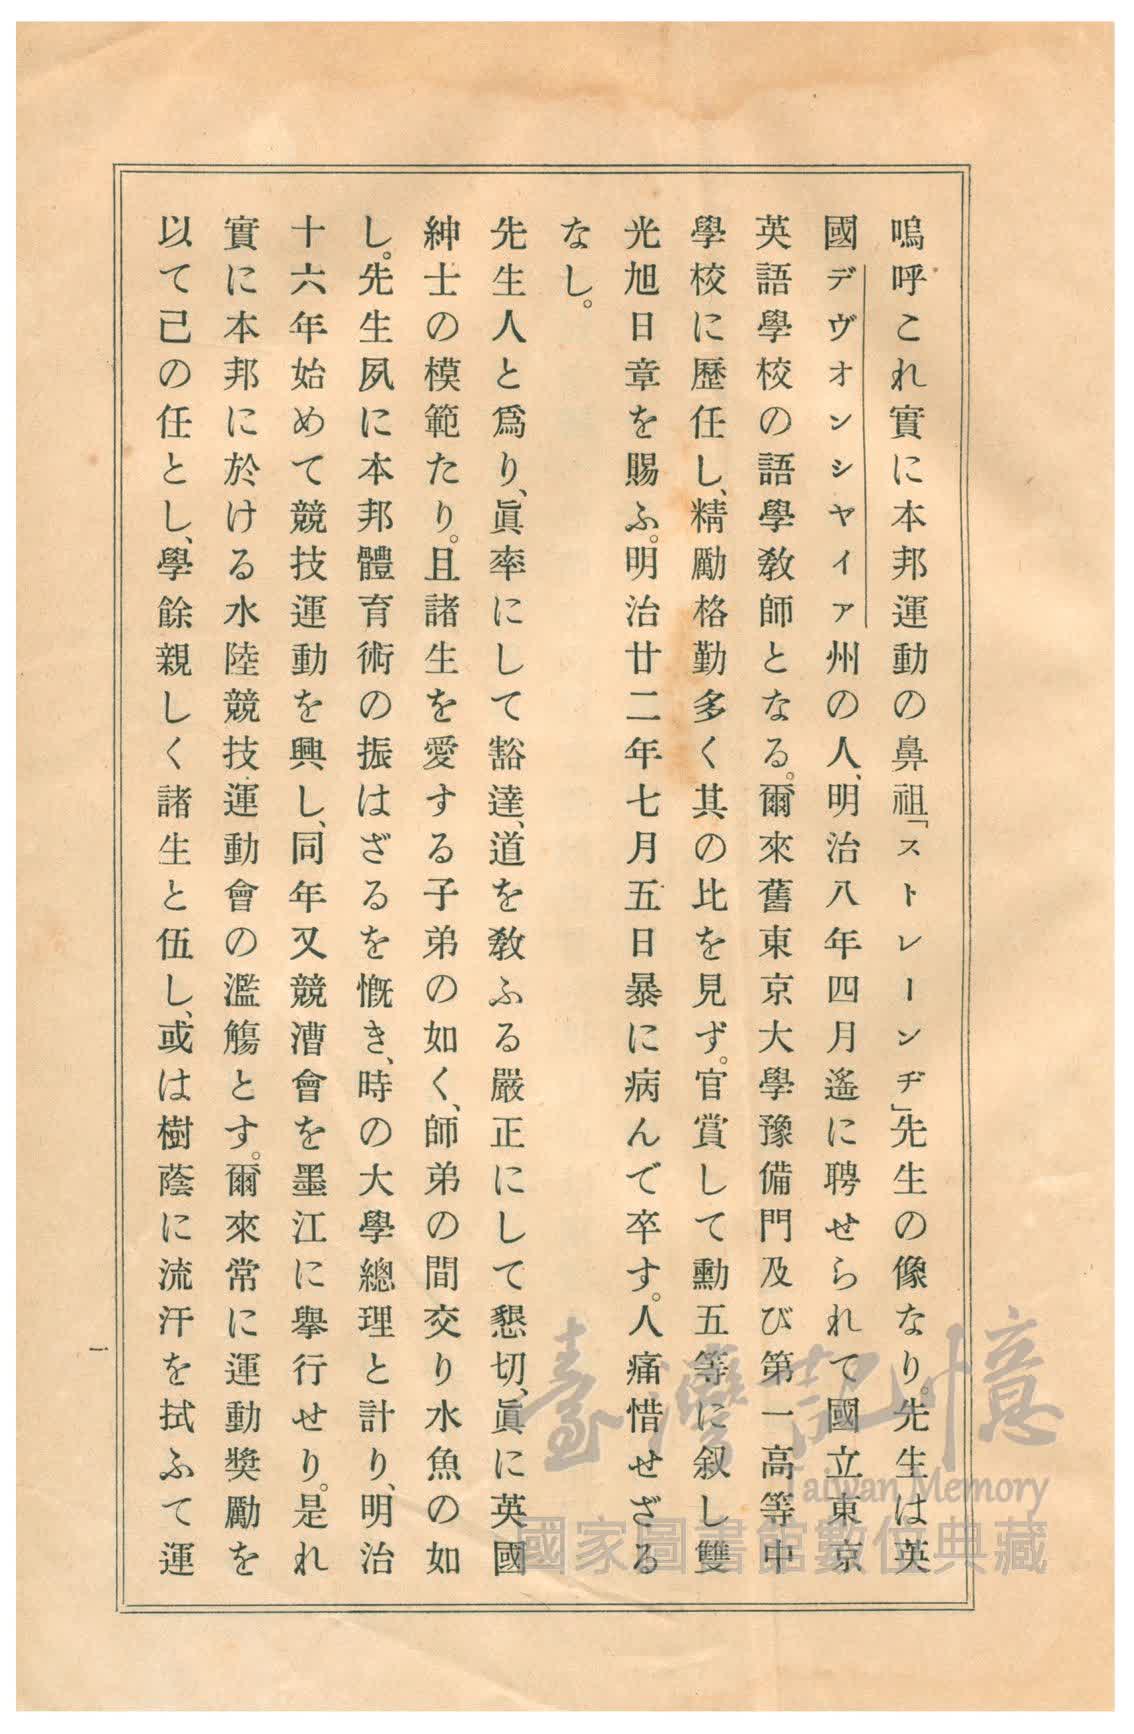 嗚呼これ實に本邦運動の鼻祖「ストレーンヂ」先生の像なり。先生は英
國デヴオンシヤイア州の人、明治八年四月遙に聘せられて國立東京
英語學校の語學教師となる。爾來舊東京大學豫備門及び第一高等中
學校に歷任し、精勵格勤多く其の比を見ず。官賞して勳五等に叙し雙
光旭日章を賜ふ。明治廿二年七月五日暴に病んで卒す。人痛惜せざる
なし。
先生人と爲り、眞率にして豁達、道を教ふる嚴正にして懇切、眞に英國
紳士の模範たり。且諸生を愛する子弟の如く、師弟の間交り水魚の如
し。先生夙に本邦體育術の振はざるを慨き、時の大學總理と計り、明治
十六年始めて競技運動を興し、同年又競漕會を墨江に擧行せり。是れ
實に本邦に於ける水陸競技運動會の濫觴とす。爾來常に運動奬勵を
以て己の任とし、學餘親しく諸生と伍し、或は樹蔭に流汗を拭ふて運
一
臺灣記憶
Taiwan Memory
國家圖書館數位典藏